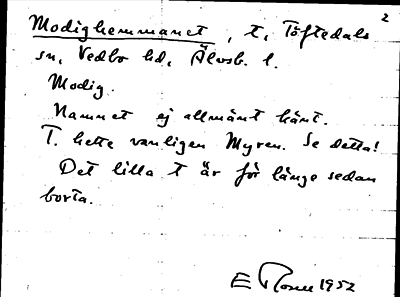 2
Modighemmanet, t, Töftedals
sn, Vedbo hd, Älvsb. l.
Modig.
Namnet ej allmänt känt.
T. hette vanligen Myren. Se detta!
Det lilla t är för länge sedan
borta.
E 1952